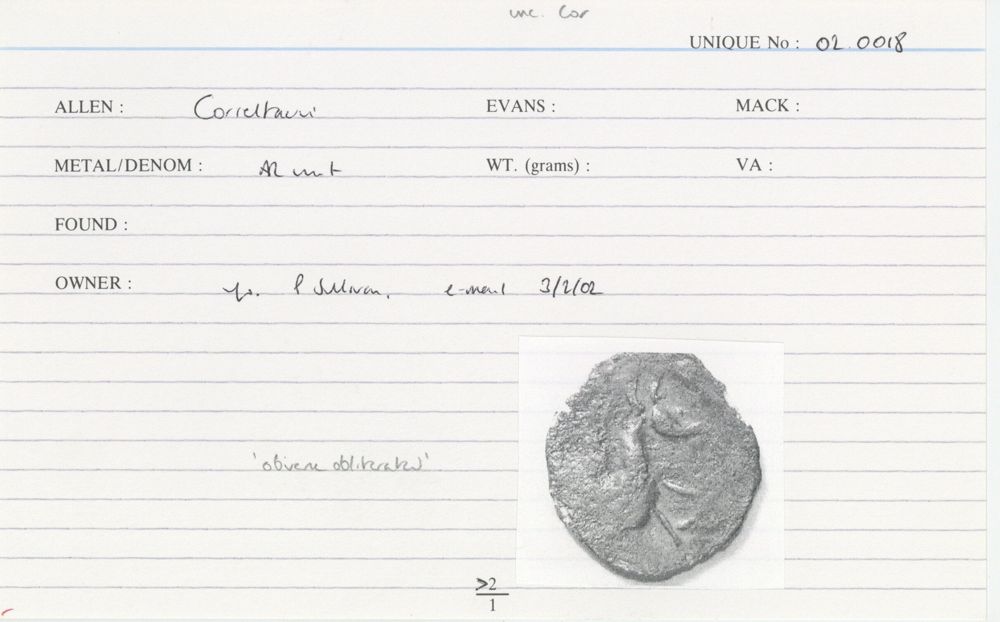 unc. Cor
UNIQUE No : 02.0018
ALLEN : Corieltauvi EVANS : MACK :
METAL/DENOM : AR unit WT. (grams) : VA :
FOUND :
OWNER : P Sullivan, e-mail 3/2/02
'obverse obliterated'
>2
1